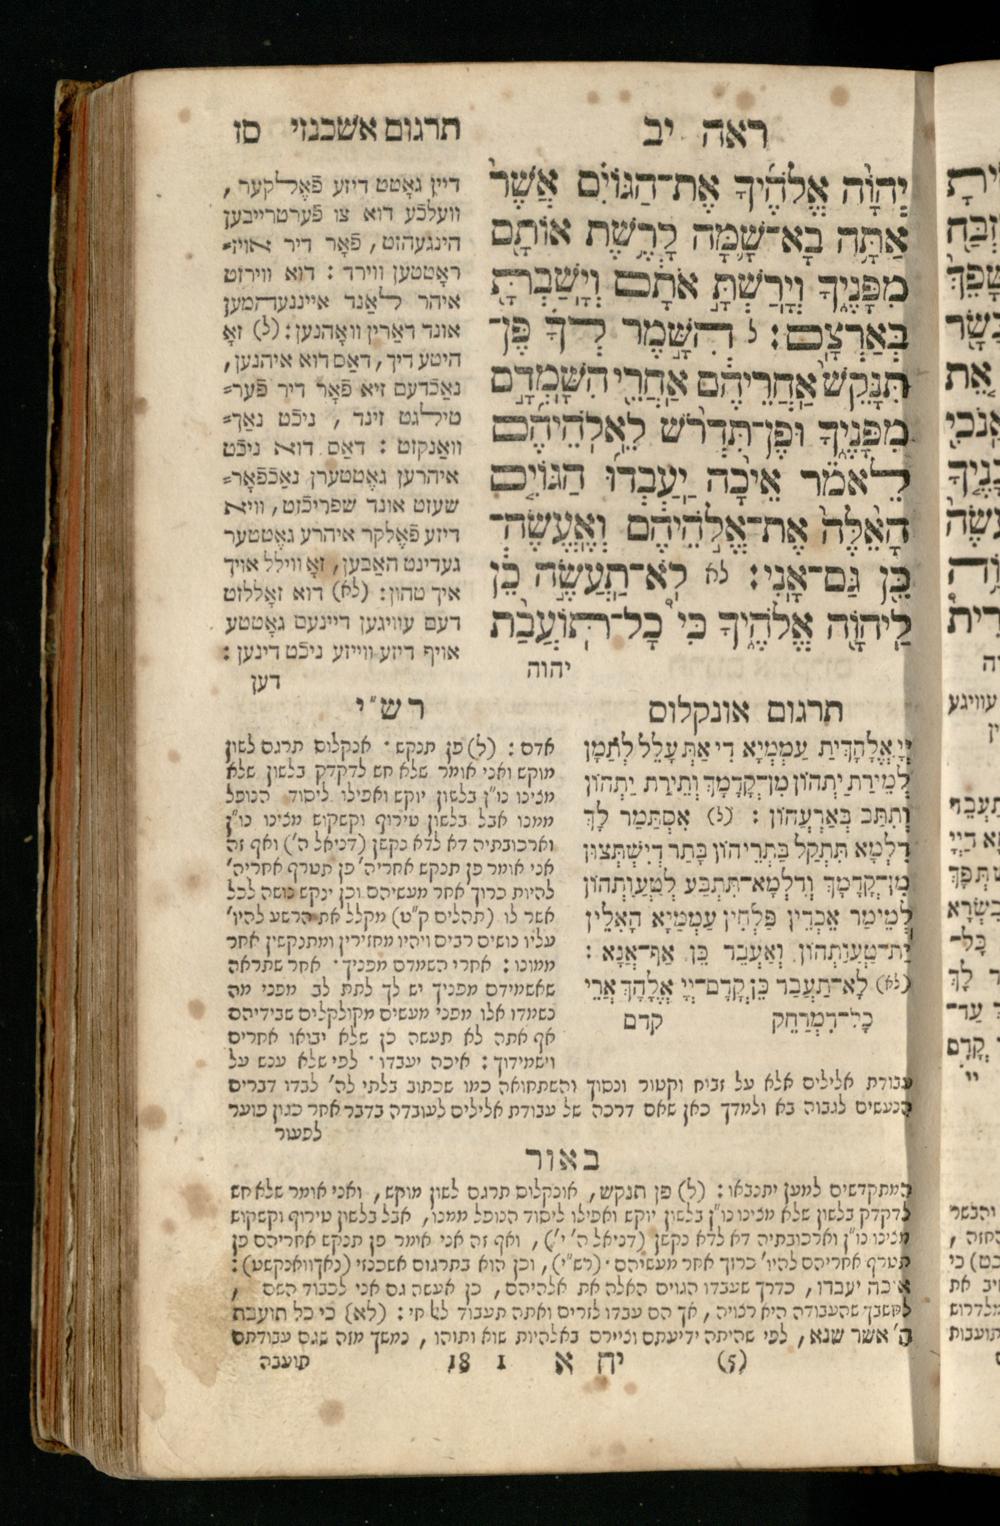 ראה יב
תרגום אשכנזי סז
יְהוָֹה אֱלֹהֶיךָ אֶת־הַגּוֹיִם אֲשֶׁר
אַתָּה בָא־שָׁמָּה לָרֶשֶׁת אוֹתָם
מִפָּנֶיךָ וְיָרַשְׁתָּ אֹתָם וְיָשַׁבְתָּ
בְּאַרְצָם: ל הִשָּׁמֶר לְךָ פֶּן־
תִּנָּקֵשׁ אַחֲרֵיהֶם אַחֲרֵי הִשָּׁמְדָם
מִפָּנֶיךָ וּפֶן־תִּדְרֹשׁ לֵאלֹהֵיהֶם
לֵאמֹר אֵיכָה יַעַבְדוּ הַגּוֹיִם
הָאֵלֶּה אֶת־אֱלֹהֵיהֶם וְאֶעֱשֶׂה־
כֵּן גַּם־אָנִי: לא לֹא־תַעֲשֶׂה כֵן
לַיהוָֹה אֱלֹהֶיךָ כִּי כָל־תּוֹעֲבַת
יהוה
דיין גאָטט דיזע פֿאָלקער,
וועלכֿע דוא צו פֿערטרייבען
הינגעהזט, פֿאָר דיר אויז=
ראָטטען ווירד: דוא ווירזט
איהר לאַנד איינגעהמען
אונד דאַרין וואָהנען: (ל) זאָ
היטע דיך, דאַס דוא איהנען,
נאַכֿדעם זיא פֿאָר דיר פֿער=
טילגט זינד, ניכֿט נאַך=
וואַנקזט: דאַס דוא ניכֿט
איהרען גאָטטערן נאַכֿפֿאָר=
שעזט אונד שפריכֿזט, וויא
דיזע פֿאָלקר איהרע גאָטטער
געדינט האַבען, זאָ וויLל אויך
איך טהון: (לא) דוא זאָללזט
דעם עוויגען דיינעם גאָטטע
אויף דיזע ווייזע ניכֿט דינען:
דען
תרגום אונקלוס
יְיָ אֱלָהָךְ יָת עַמְמַיָּא דִּי אַתְּ עָלֵל לְתַמָּן
לְמֵירַת יָתְהוֹן מִן־קֳדָמָךְ וְתֵירַת יָתְהוֹן
וְתִתֵּב בְּאַרְעֲהוֹן: (ל) אִסְתַּמַּר לָךְ
דִּלְמָא תִּתְּקַל בַּתְרֵיהוֹן בָּתַר דְּיִשְׁתֵּצוּן
מִן־קֳדָמָךְ וְדִלְמָא־תִּתְבַּע לְטַעֲוָתְהוֹן
לְמֵימַר אֶכְדֵין פָּלְחִין עַמְמַיָּא הָאִלֵּין
יָת־טַעֲוָתְהוֹן וְאַעְבֵּד כֵּן אַף־אֲנָא:
(לא) לָא־תַעְבֵּד כֵּן קֳדָם־יְיָ אֱלָהָךְ אֲרֵי
כָּל־דִּמְרַחֵק קדם
רש"י
אדם: (ל) פן תנקש · אנקלוס תרגם לשון
מוקש ואני אומר שלא חש לדקדק בלשון שלא
מצינו נו"ן בלשון יוקש ואפילו ליסוד הנופל
ממנו אבל בלשון טירוף וקשקוש מצינו נו"ן
וארכובתיה דא לדא נקשן (דניאל ה') ואף זה
אני אומר פן תנקש אחריה' פן תטרף אחריה'
להיות כרוך אחר מעשיהם וכן ינקש נושה לכל
אשר לו (תהלים ק"ט) מקלל את הרשע להיו'
עליו נושים רבים ויהיו מחזירין ומתנקשין אחר
ממונו: אחרי השמדם מפניך · אחר שתראה
שאשמידם מפניך יש לך לתת לב מפני מה
נשמדו אלו מפני מעשים מקולקלים שבידיהם
אף אתה לא תעשה כן שלא יבואו אחרים
וישמידוך: איכה יעבדו · לפי שלא ענש על
עבודת אלילים אלא על זבוח וקטור ונסוך והשתחואה כמו שכתוב בלתי לה' לבדו דברים
הנעשים לגבוה בא ולמדך כאן שאם דרכה של עבודת אלילים לעובדה בדבר אחר כגון פוער
לפעור
באור
המתקדשים למען יתנבאו: (ל) פן תנקש, אונקלוס תרגם לשון מוקש, ואני אומר שלא חש
לדקדק בלשון שלא מצינו נו"ן בלשון יוקש ואפילו ליסוד הנופל ממנו, אבל בלשון טירוף וקשקוש
מצינו נו"ן וארכובתיה דא לדא נקשן (דניאל ה' י'), ואף זה אני אומר פן תנקש אחריהם פן
תטרף אחריהם להיו' כרוך אחר מעשיהם · (רש"י), וכן הוא בתרגום אשכנזי (נאָךוואנקשט):
איכה יעבדו, כדרך שעבדו הגוים האלה את אלהיהם, כן אעשה גם אני לכבוד השם,
לחשבך שהעבודה היא רצויה, אך הם עבדו לזרים ואתה תעבוד לאל חי: (לא) כי כל תועבת
ה' אשר שנא, לפי שהיתה ידיעתם וציירם באלהיות שוא ותוהו, נמשך מזה שגם עבודתם
תועבה
(5) יח א 1 18